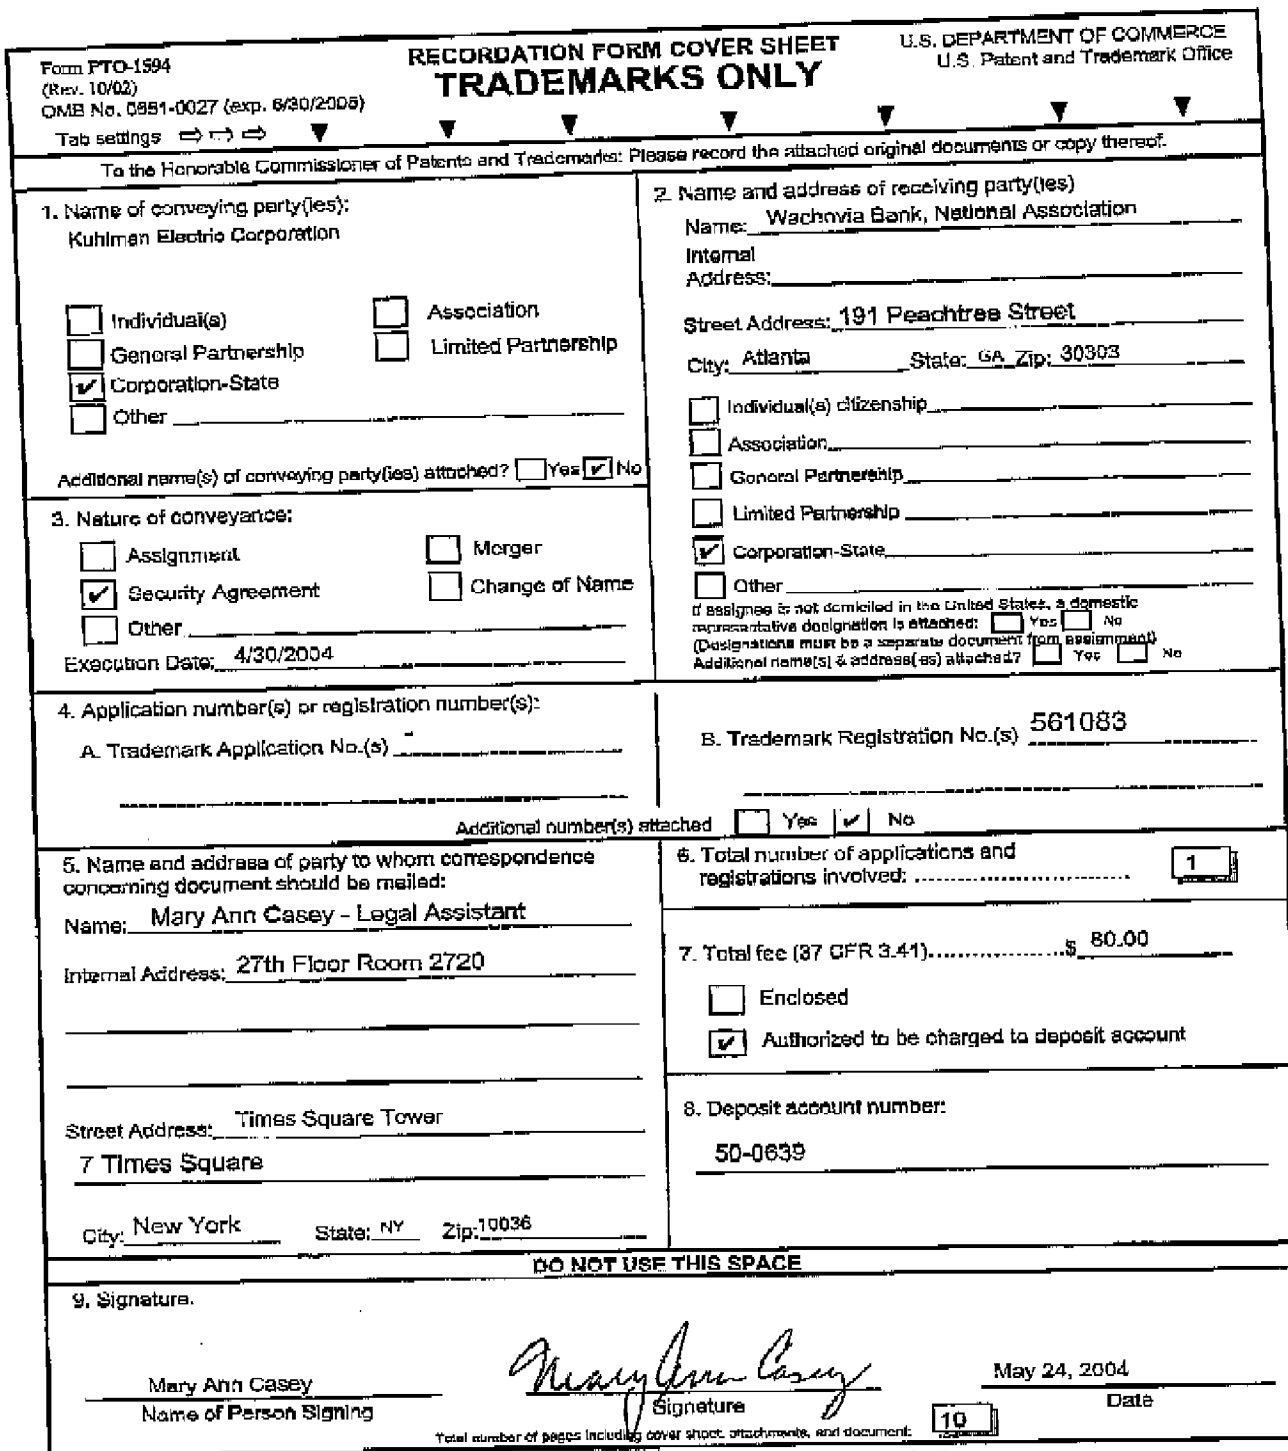 Form PTO-1594
(Rev. 10/02)
OMB No. 0651-0027 (exp. 6/30/2005)
Tab settings ⇨ ⇨ ⇨ ▼ ▼ ▼ ▼ ▼ ▼ ▼
RECORDATION FORM COVER SHEET
TRADEMARKS ONLY
U.S. DEPARTMENT OF COMMERCE
U.S. Patent and Trademark Office
To the Honorable Commissioner of Patents and Trademarks: Please record the attached original documents or copy thereof.
1. Name of conveying party(ies):
Kuhlman Electric Corporation
Individual(s)
Association
General Partnership
Limited Partnership
✔ Corporation-State
Other
Additional name(s) of conveying party(ies) attached? Yes ✔ No
2. Name and address of receiving party(ies)
Name: Wachovia Bank, National Association
Internal
Address:
Street Address: 191 Peachtree Street
City: Atlanta State: GA Zip: 30303
Individual(s) citizenship
Association
General Partnership
Limited Partnership
✔ Corporation-State
Other
If assignee is not domiciled in the United States, a domestic
representative designation is attached: Yes No
(Designations must be a separate document from assignment)
Additional name(s) & address(es) attached? Yes No
3. Nature of conveyance:
Assignment
Merger
✔ Security Agreement
Change of Name
Other
Execution Date: 4/30/2004
4. Application number(s) or registration number(s):
A. Trademark Application No.(s) -
B. Trademark Registration No.(s) 561083
Additional number(s) attached Yes ✔ No
5. Name and address of party to whom correspondence
concerning document should be mailed:
Name: Mary Ann Casey - Legal Assistant
Internal Address: 27th Floor Room 2720
Street Address: Times Square Tower
7 Times Square
City: New York State: NY Zip: 10036
6. Total number of applications and
registrations involved: 1
7. Total fee (37 CFR 3.41)..................$ 80.00
Enclosed
✔ Authorized to be charged to deposit account
8. Deposit account number:
50-0639
DO NOT USE THIS SPACE
9. Signature.
Mary Ann Casey
Name of Person Signing
Mary Ann Casey
Signature
May 24, 2004
Date
Total number of pages including cover sheet, attachments, and document: 10